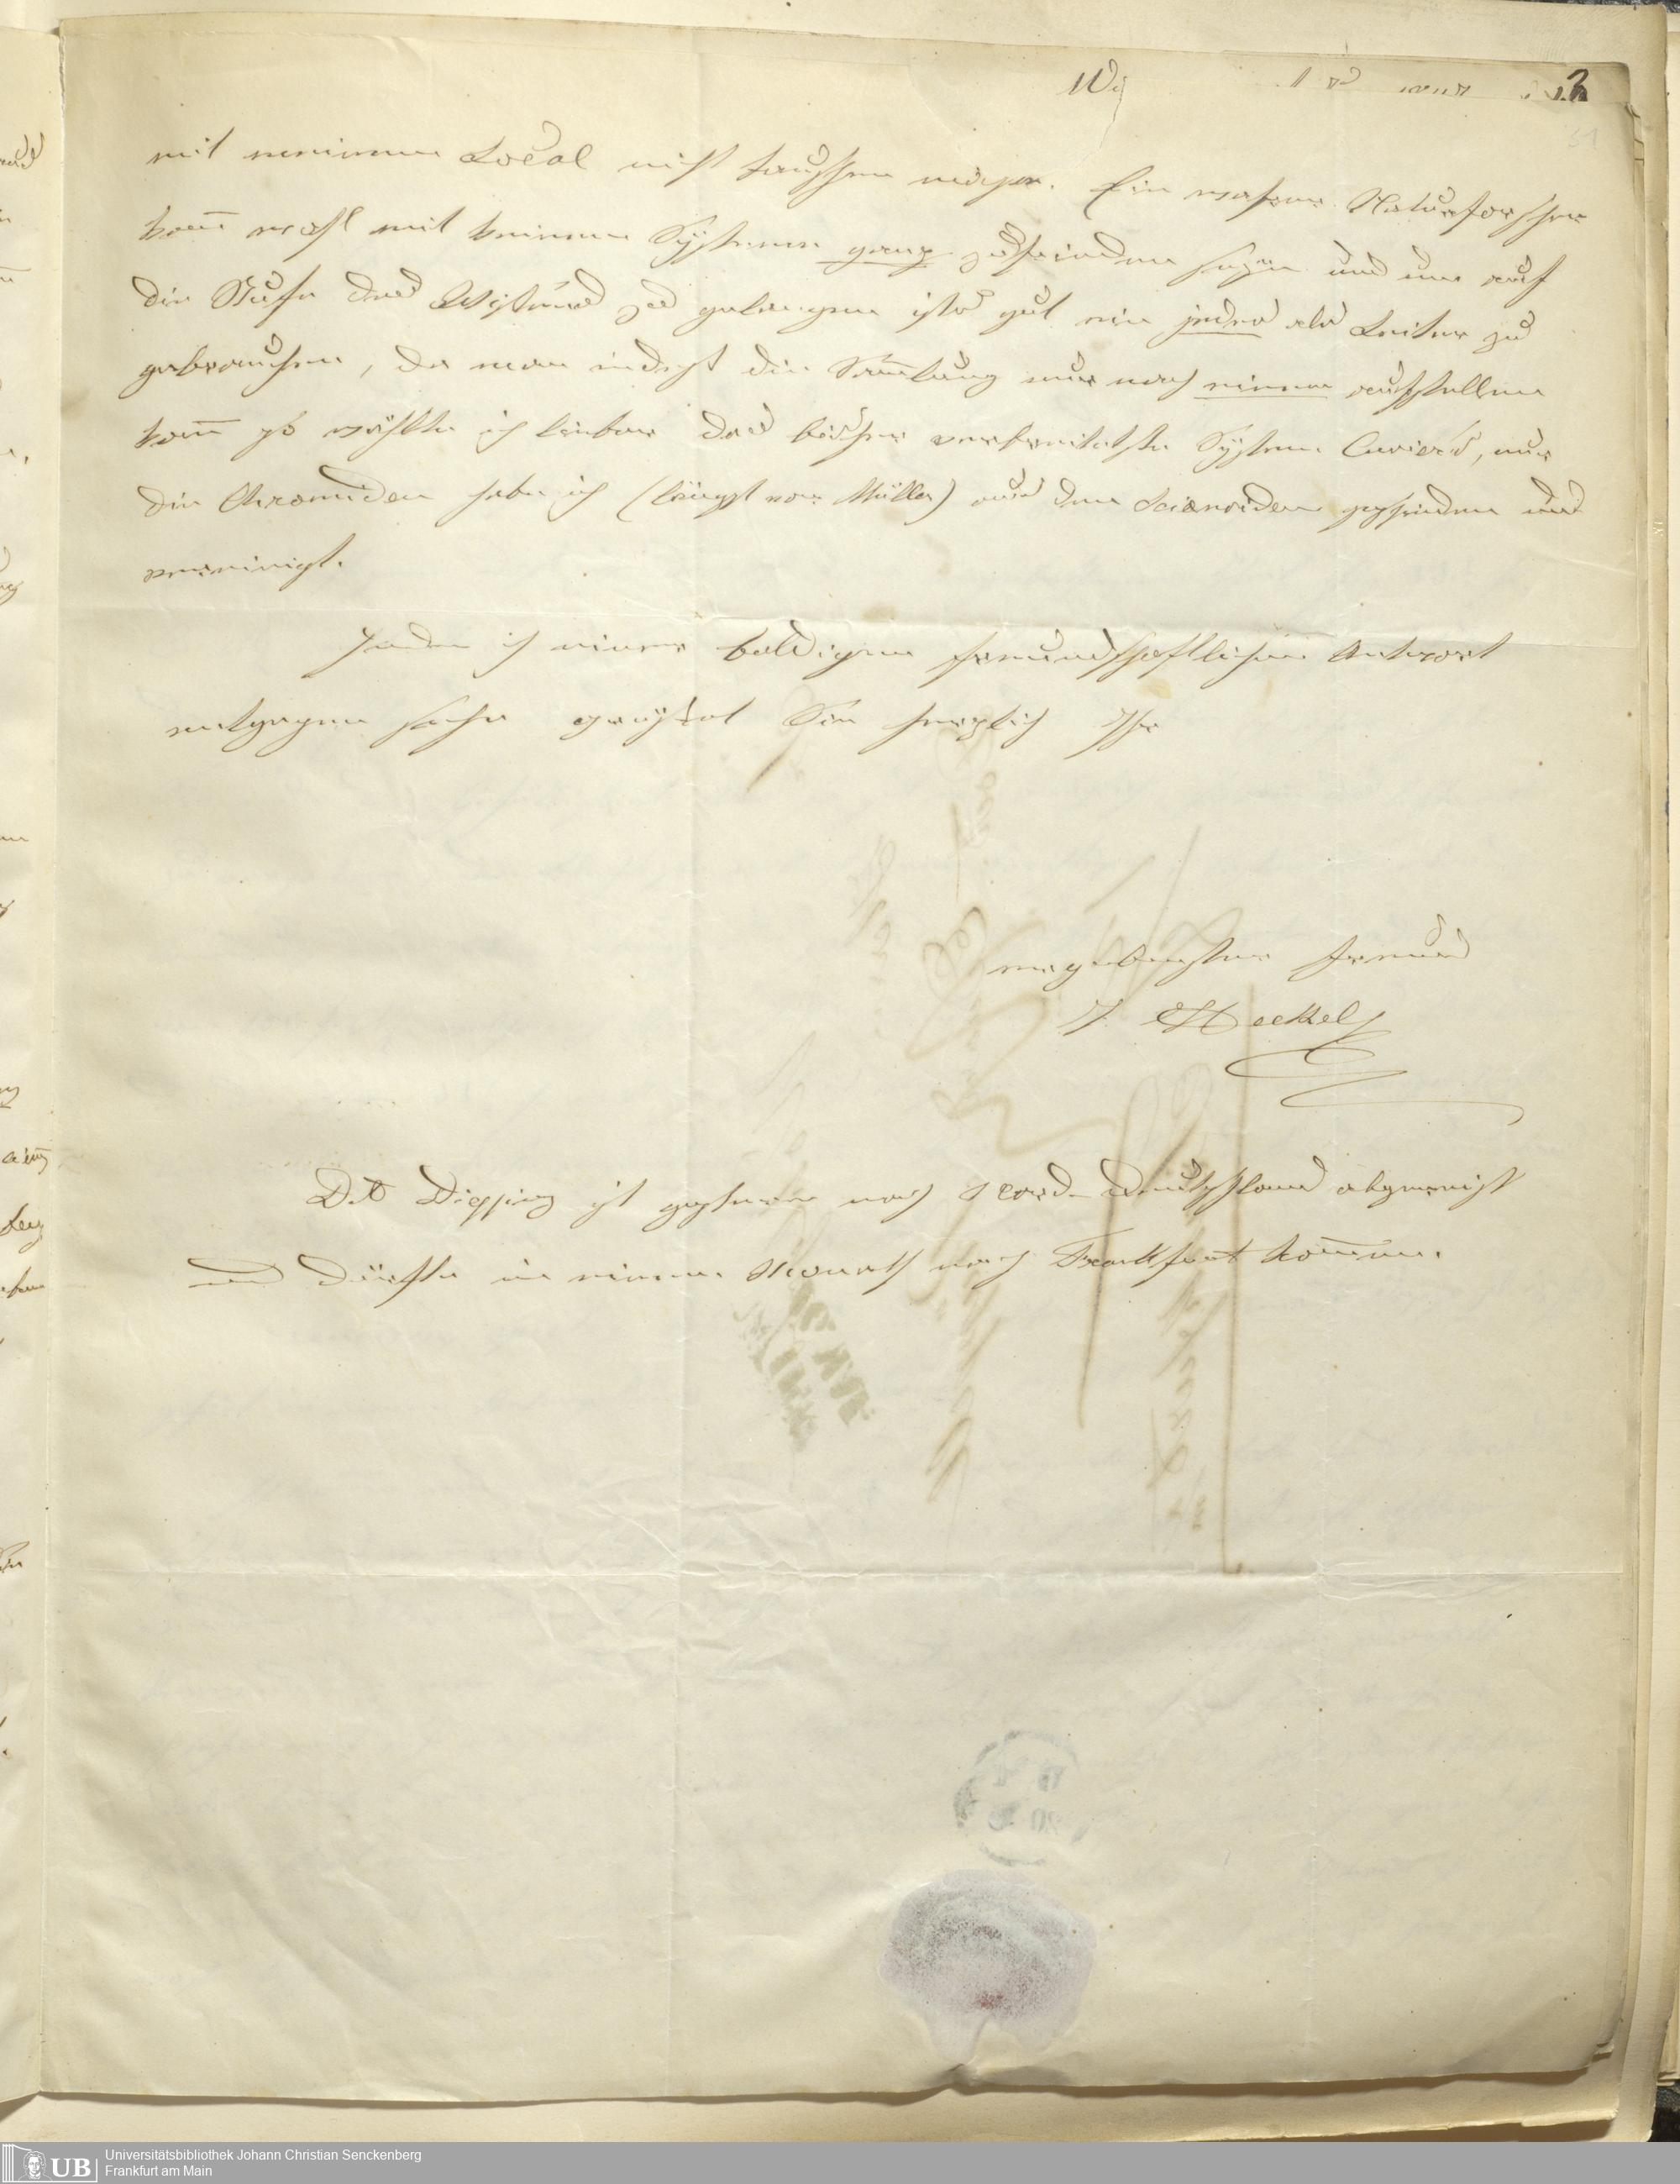 mit meinem Local nicht tauschen mögen. Ein wahrer Naturforscher
kan̄ wohl mit keinem Systeme ganz zufrieden seyn und um auf
die Stufe des zu gelangen ists gut ein jedes als Leiter zu
gebrauchen, da man indeßt die Sam̄lung nur nach einem aufstellen
kan̄ so wählte ich lieber das bisher verbreitetste System Cuvier's, nur
die Chromiden habe ich (längst vor Müller) aus den Sciænoiden geschieden und
vereinigt.
Indem ich einer baldigen freundschaftlichen Antwort
entgegen sehe grüßet Sie herzlich Ihr
ergebenster Freund
J. Heckel
Dr Diesing ist gestern nach Nord-Deutschland abgereist
und dürfte in einem Monath nach Frankfurt kom̄en.
UB
Universitätsbibliothek Johann Christian Senckenberg
Frankfurt am Main